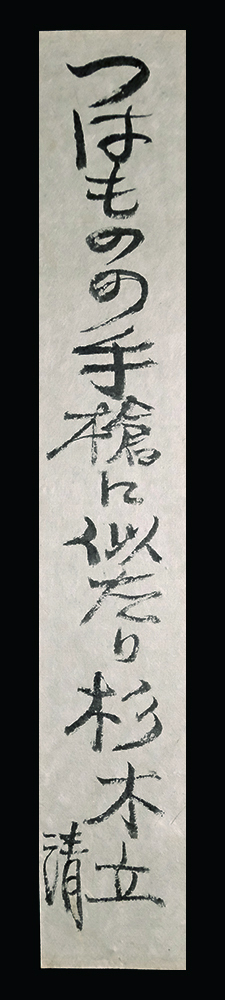 つはものの手槍に似たり杉木立
清